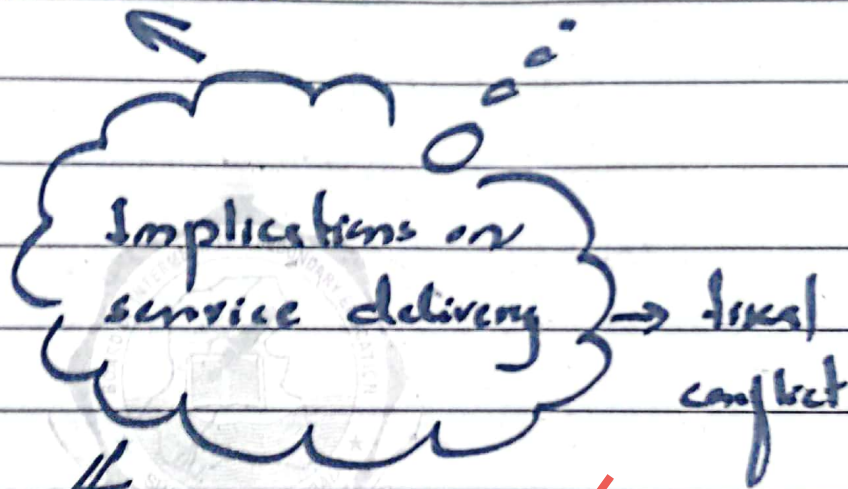 Implications on
service delivery → fiscal
conflict